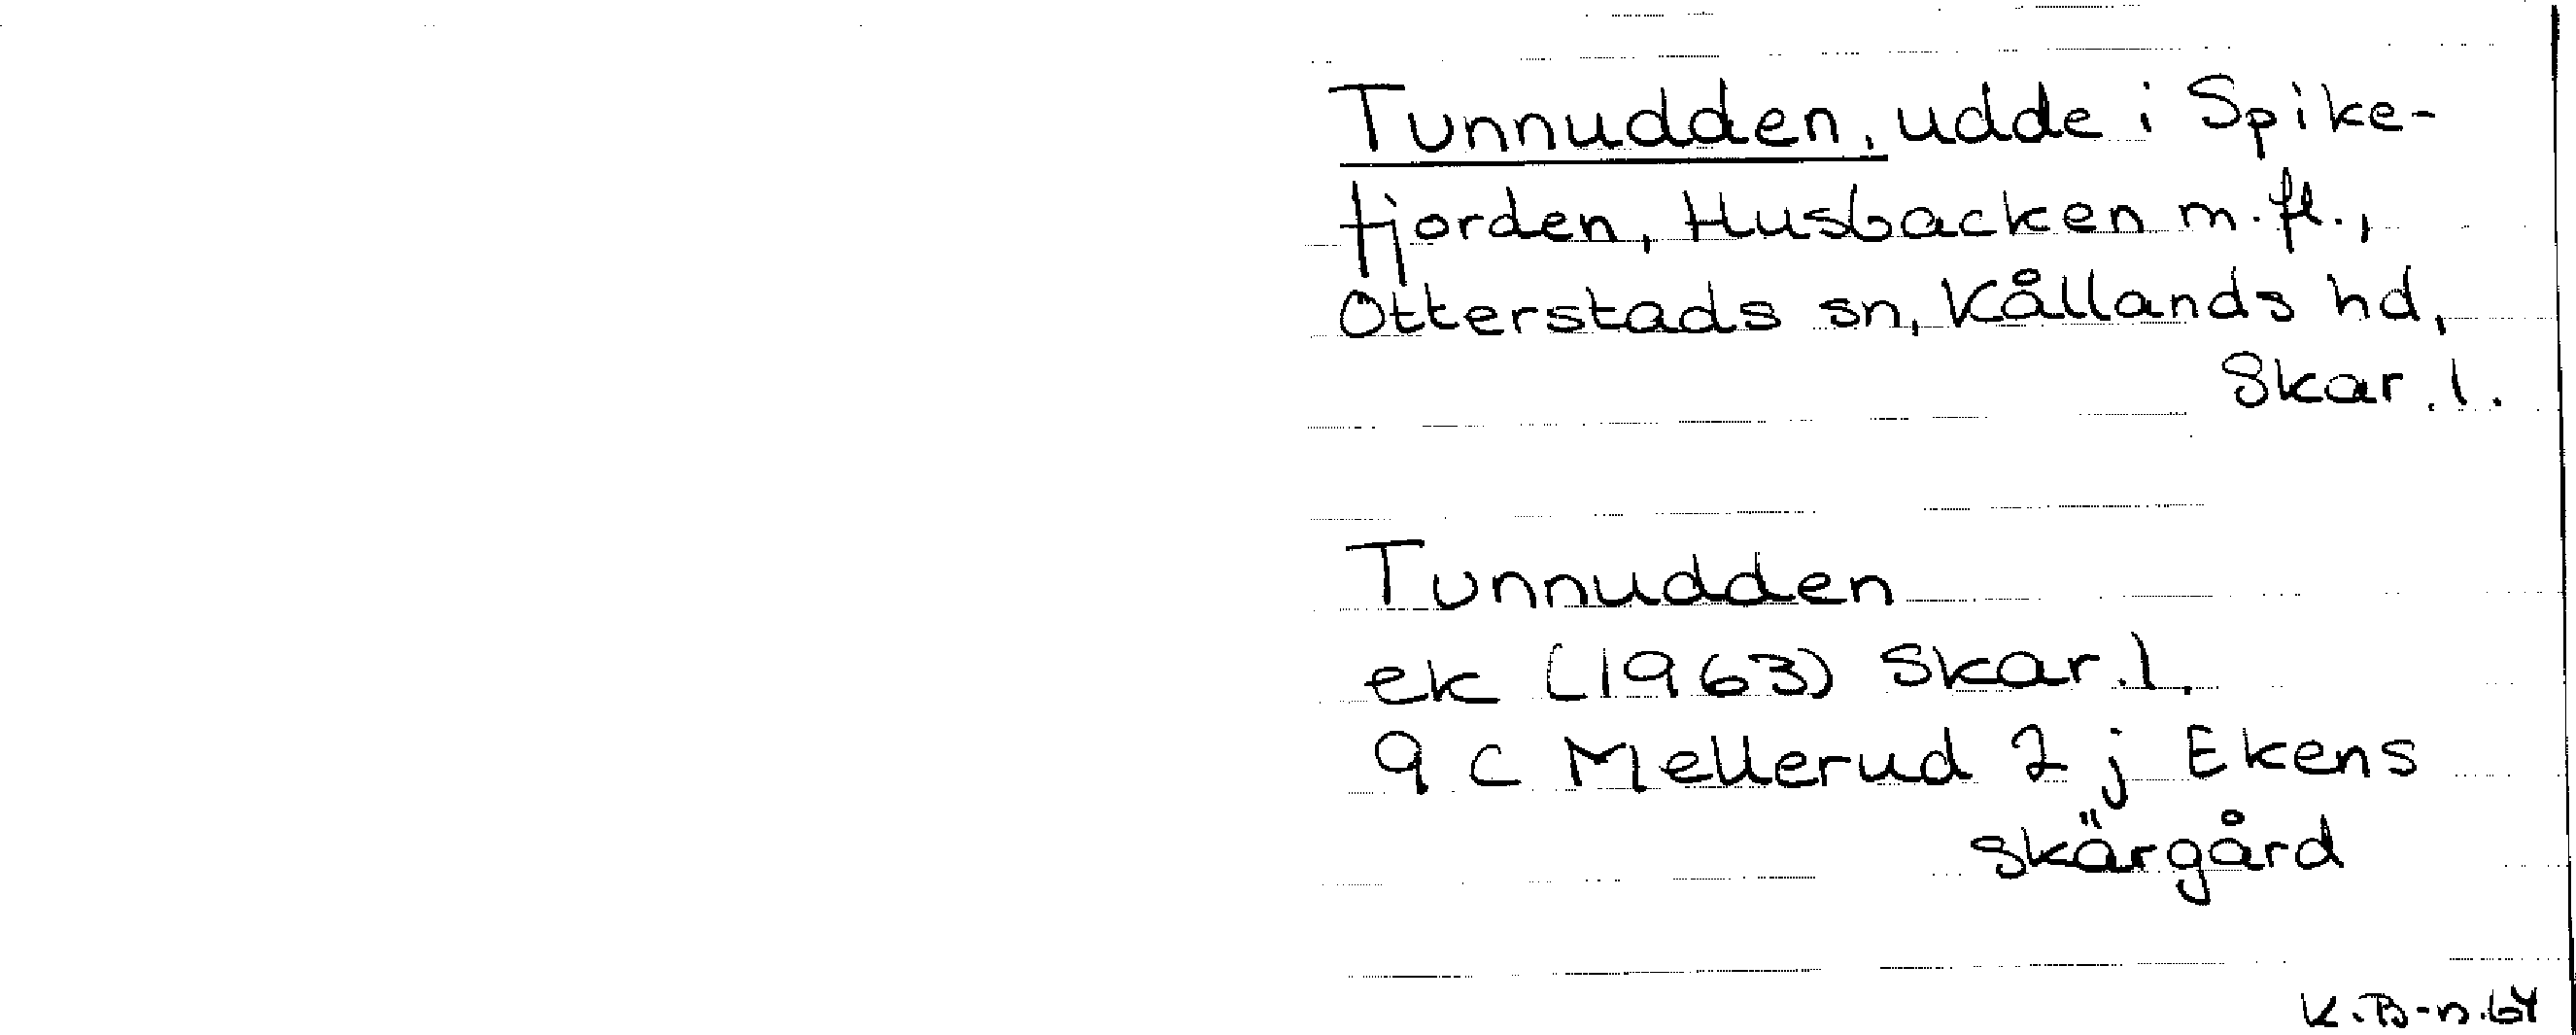 Tunnudden, udde i Spike-
fjorden, Husbacken m.fl.,
Otterstads sn, Kållands hd,
Skar.l.
Tunnudden
ek (1963) Skar.l.
9 C Mellerud 2 j Ekens
skärgård
K.B-n.64